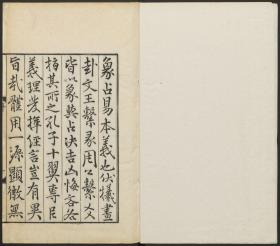 象占易本義也伏犧畫
卦文王繫彖周公繫爻
皆以象與占決吉凶悔吝各
指其所之孔子十翼專用
義理發揮經言豈有異
旨哉體用一源顯微無